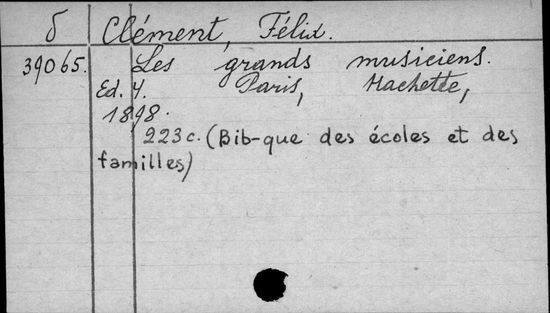 б Clément, Félix.
39065. Les grands musiciens.
Ed. 4. Paris, Hachette,
1898.
223 c. (Bib-que des écoles et des
familles)